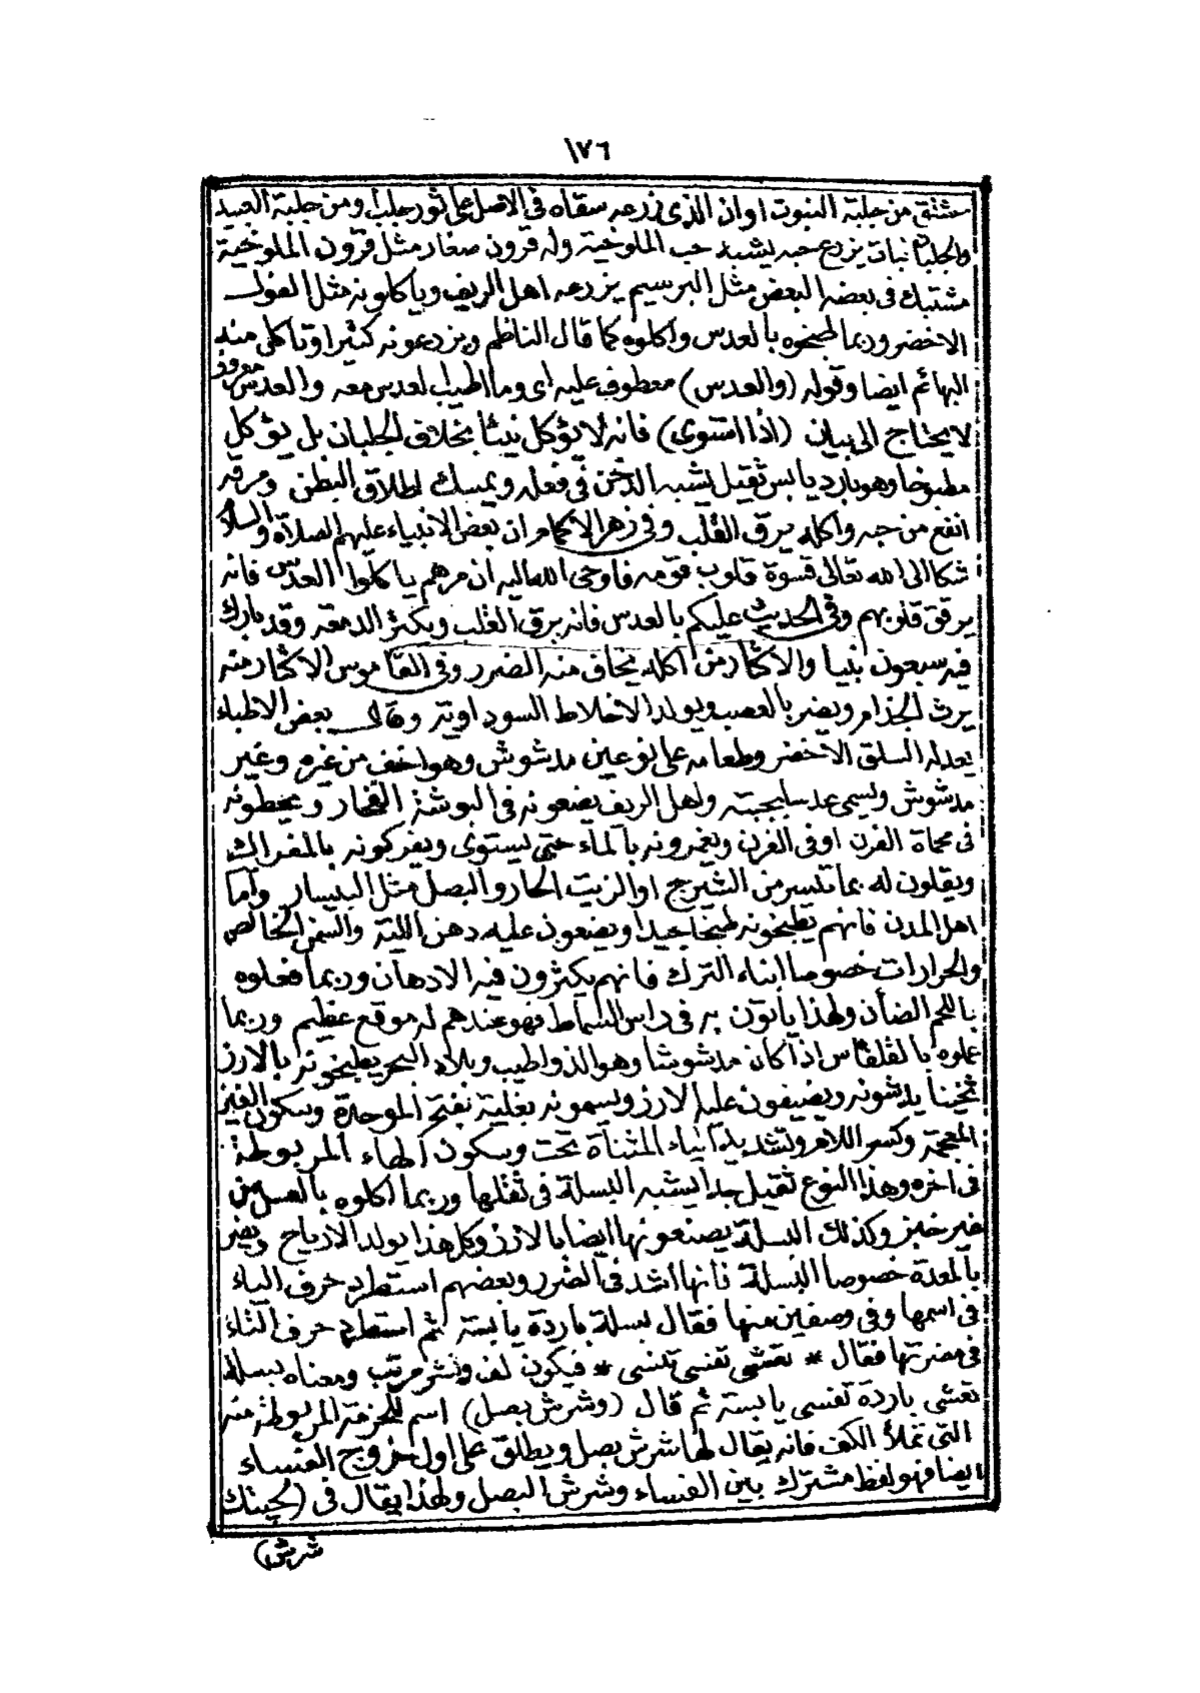 ١٧٦
مشتق من جلبة النبوت او ان الذى زرعه سقاه فى الاصل على ثور جلب او من جلبة العبيد
والجلبان نبات يزرع حبه يشبه حب الملوخية وله قرون صغار مثل قرون الملوخية
مشتبك فى بعضه البعض مثل البرسيم يزرعه اهل الريف وياكلونه مثل الفول
الاخضر وربما طبخوه بالعدس واكلوه كما قال الناظم ويزرعونه كثيرا وتاكل منه
البهائم ايضا وقوله (والعدس) معطوف عليه اى وما اطيب لعدس معه والعدس معروف
لا يحتاج الى بيان (اذا استوى) فانه لا يؤكل نيئا بخلاف الجلبان بل يؤكل
مطبوخا وهو بارد يابس ثقيل يشبه الدخن فى فعله ويمسك اطلاق البطن ومرقه
انفع من حبه واكله يرق القلب وفى زهر الاكمام ان بعض الانبياء عليهم الصلاة والسلام
شكا الى الله تعالى قسوة قلوب قومه فاوحى الله اليه ان مرهم ياكلوا العدس فانه
يرقق قلوبهم وفى الحديث عليكم بالعدس فانه يرق القلب ويكثر الدمعة وقد بارك
فيه سبعون نبيا والاكثار من اكله يخاف منه الضرر وفى القاموس الاكثار منه
يرث الجذام ويضر بالعصب ويولد الاخلاط السوداوية وقال بعض الاطباء
يعدله السلق الاخضر وطعامه على نوعين مدشوش وهو اخف من غيره وغير
مدشوش ويسمى عدسا بجبته واهل الريف يضعونه فى البوشة الفخار ويحطونه
فى محماة الفرن او فى الفرن ويغمرونه بالماء حتى يستوى ويفركونه بالمفراك
ويقلون له بما تيسر من الشيرج او الزيت الحار والبصل مثل البيسار واما
اهل المدن فانهم يطبخونه طبخا جيدا ويضعون عليه دهن اللية والسمن الخالص
والحرارات خصوصا ابناء الترك فانهم يكثرون فيه الادهان وربما فعلوه
باللحم الضأن ولهذا يأتون به فى راس السماط فهو عندهم له موقع عظيم وربما
عملوه بالقلقاس اذا كان مدشوشا وهو الذ واطيب وبلاد البحر يطبخونه بالارز
ثخينا يدشونه ويضيفون عليه الارز ويسمونه بغلية بفتح الموحدة وسكون الغين
المعجمة وكسر اللام وتشديد الياء المثناة تحت وسكون الهاء المربوطة
فى اخره وهذا النوع ثقيل جدا يشبه البسلة فى ثقلها وربما اكلوه بالعسل من
غير خبز وكذلك البسلة يصنعونها ايضا بالارز وكل هذا يولد الارياح ويضر
بالمعدة خصوصا البسلة فانها اشد فى الضرر وبعضهم استطرد حرف الباء
فى اسمها وفى وصفين منها فقال بسلة باردة يابسة ثم استطرد حرف التاء
فى مضرتها فقال * تعشى تفسى تنسى * فيكون لف ونشر مرتب ومعناه بسلة
تعشى باردة تفسى يابسة ثم قال (وشرش بصل) اسم للحزمة المربوطة منه
التى تملأ الكف فانه يقال لها شرش بصل ويطلق على اول خروج الفساء
ايضا فهو لفظ مشترك بين الفساء وشرش البصل ولهذا يقال فى (لحيتك
شرش)